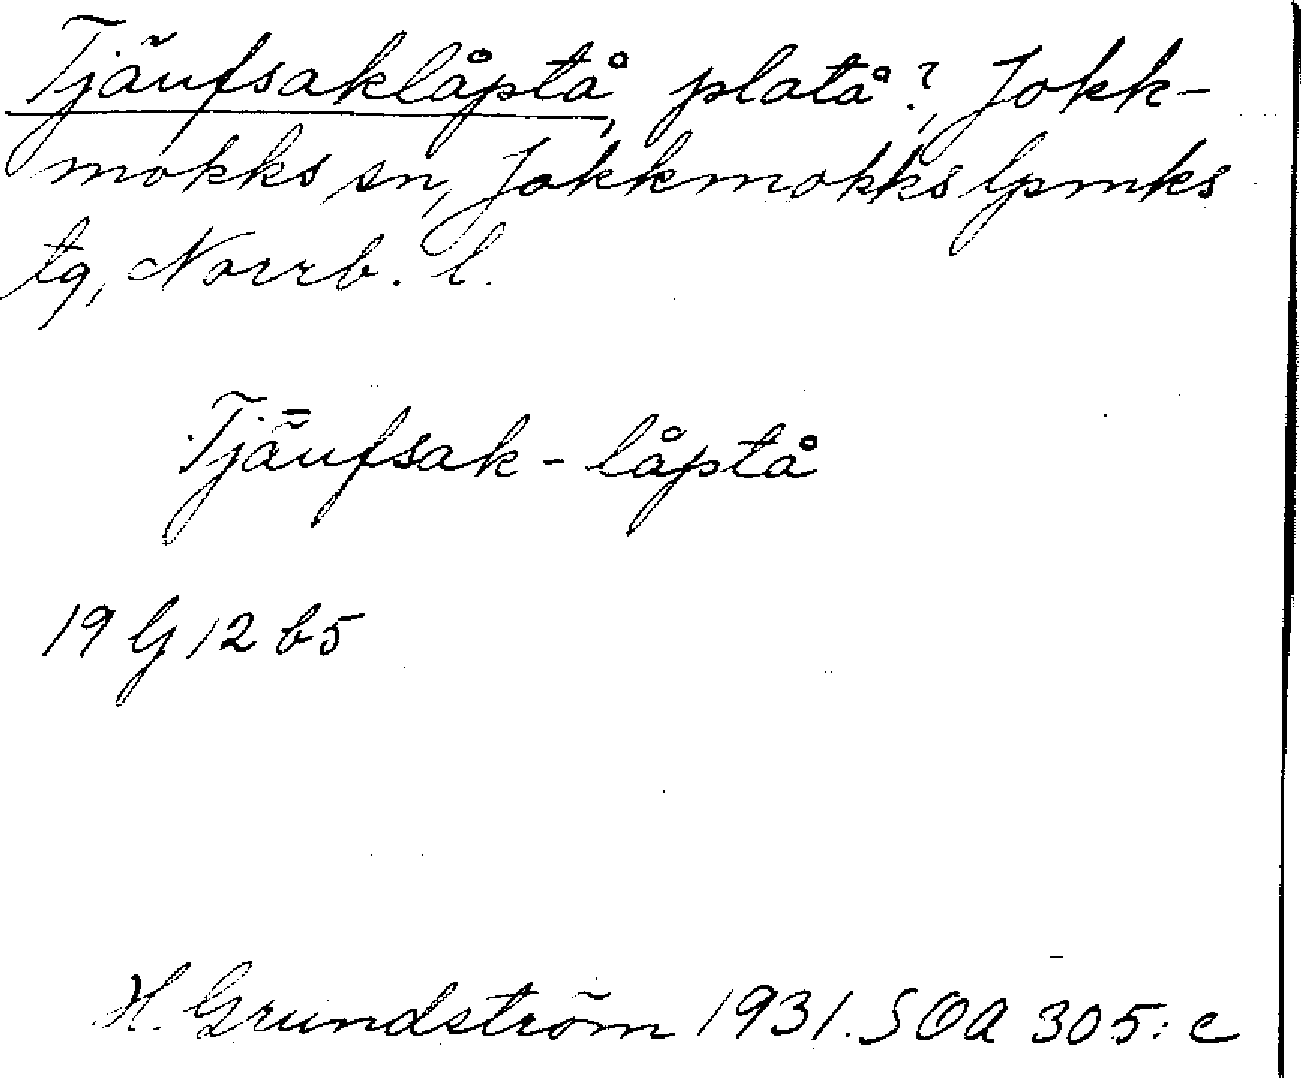 Tjäufsaklåptå, platå?, Jokk-
mokks sn, Jokkmokks lpmks
tg, Norrb. l.
Tjǟufsak-låptå
19 G 12 b5
H. Grundström 1931. SOA 305: c